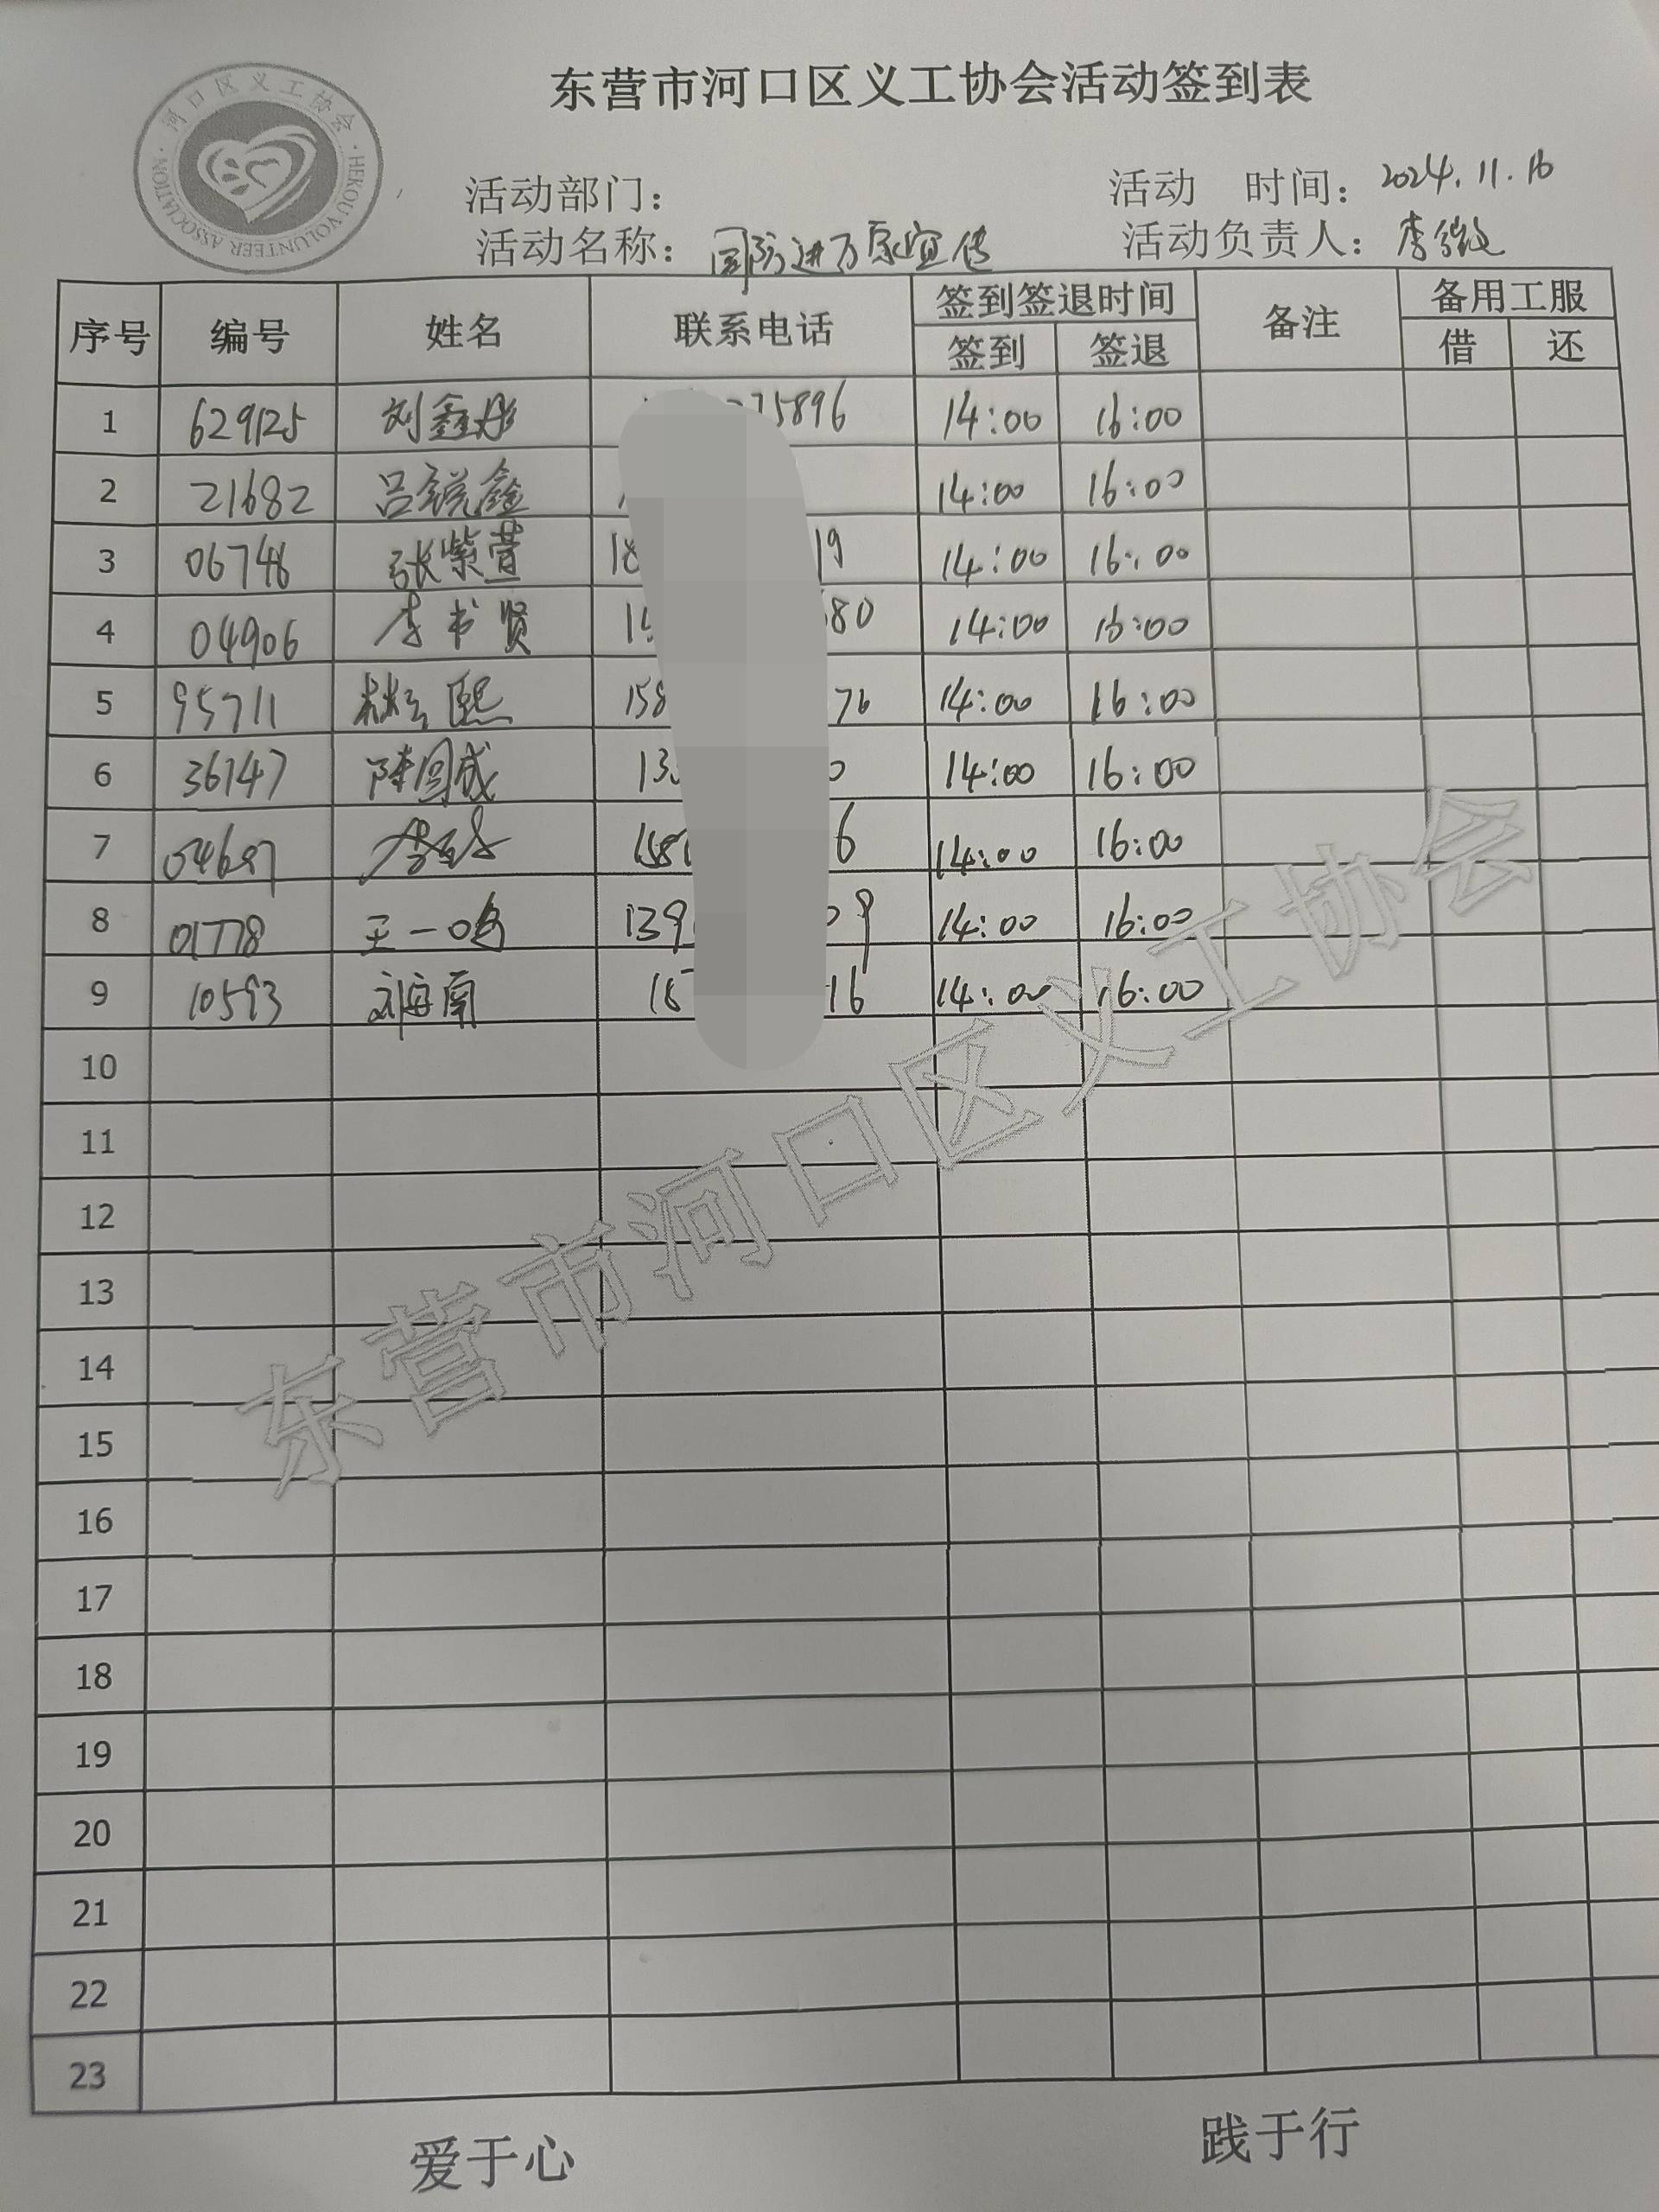 东营市河口区义工协会活动签到表
河口区义工协会
HEKOU VOLUNTEER ASSOCIATION
活动部门： 活动 时间：2024.11.16
活动名称：国防进万家宣传 活动负责人：李
序号 编号 姓名 联系电话 签到签退时间 备注 备用工服
签到 签退 借 还
1 629125 刘鑫彤 75896 14:00 16:00
2 21682 吕锐鑫 14:00 16:00
3 06746 张紫萱 18 19 14:00 16:00
4 04906 李书贤 15 680 14:00 16:00
5 95711 林 熙 158 76 14:00 16:00
6 36747 陈国成 13 0 14:00 16:00
7 04697 李 158 6 14:00 16:00
8 01778 王一鸣 139 09 14:00 16:00
9 10593 刘海南 16 14:00 16:00
10
11
12
13
14
15
16
17
18
19
20
21
22
23
东营市河口区义工协会
爱于心 践于行